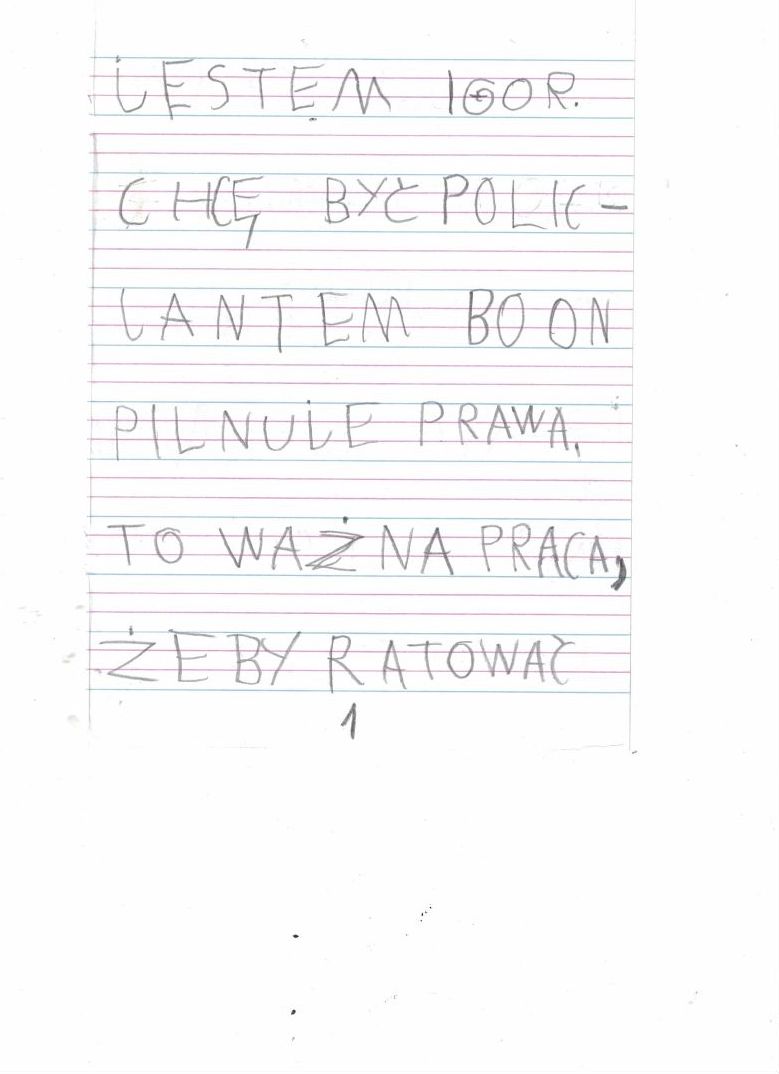 JESTEM IGOR.
CHCĘ BYĆ POLIC-
JANTEM BO ON
PILNUJE PRAWA.
TO WAŻNA PRACA,
ŻEBY RATOWAĆ
1